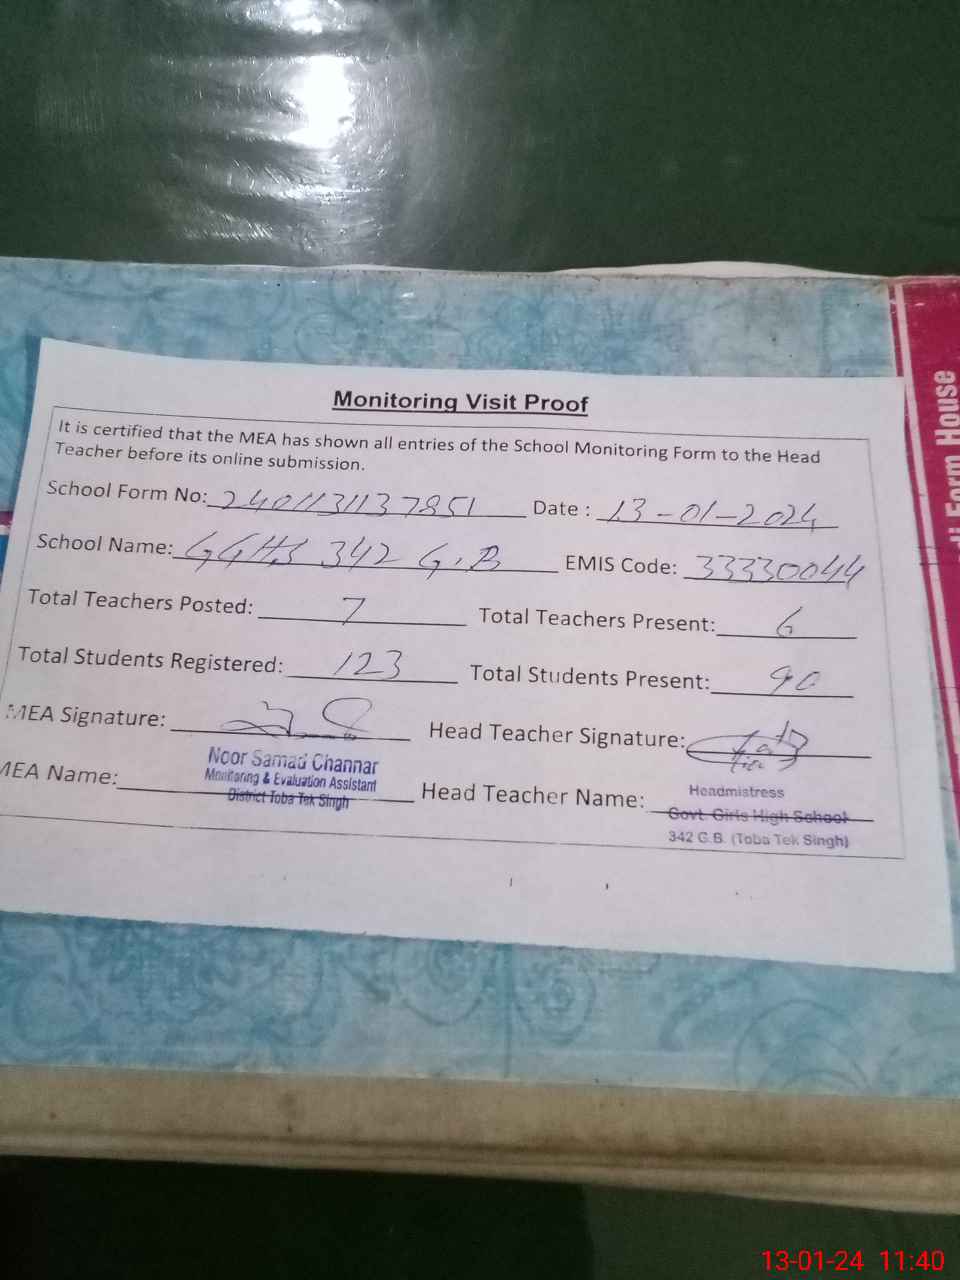 Monitoring Visit Proof
It is certified that the MEA has shown all entries of the School Monitoring Form to the Head
Teacher before its online submission.
School Form No: 2401131137851 Date : 13-01-2024
School Name: GGHS 342 G.B EMIS Code: 33330044
Total Teachers Posted: 7 Total Teachers Present: 6
Total Students Registered: 123 Total Students Present: 90
MEA Signature: Head Teacher Signature:
MEA Name: Noor Samad Channar
Monitoring & Evaluation Assistant
District Toba Tek Singh
Head Teacher Name: Headmistress
Govt. Girls High School
342 G.B. (Toba Tek Singh)
Form House
13-01-24 11:40